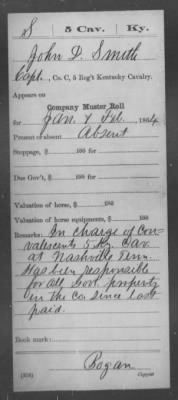 S | 5 Cav. | Ky.
John D. Smith
Capt., Co. C, 5 Reg't Kentucky Cavalry.
Appears on
Company Muster Roll
for Jan. & Feb., 1864.
Present or absent Absent
Stoppage, $ 100 for
Due Gov't, $ 100 for
Valuation of horse, $ 100
Valuation of horse equipments, $ 100
Remarks: In charge of con-
valescents 5 Ky Cav.
at Nashville Tenn.
Has been responsible
for all Govt. property
in the Co. since last
paid.
Book mark:
Bogan
(358) Copyist.